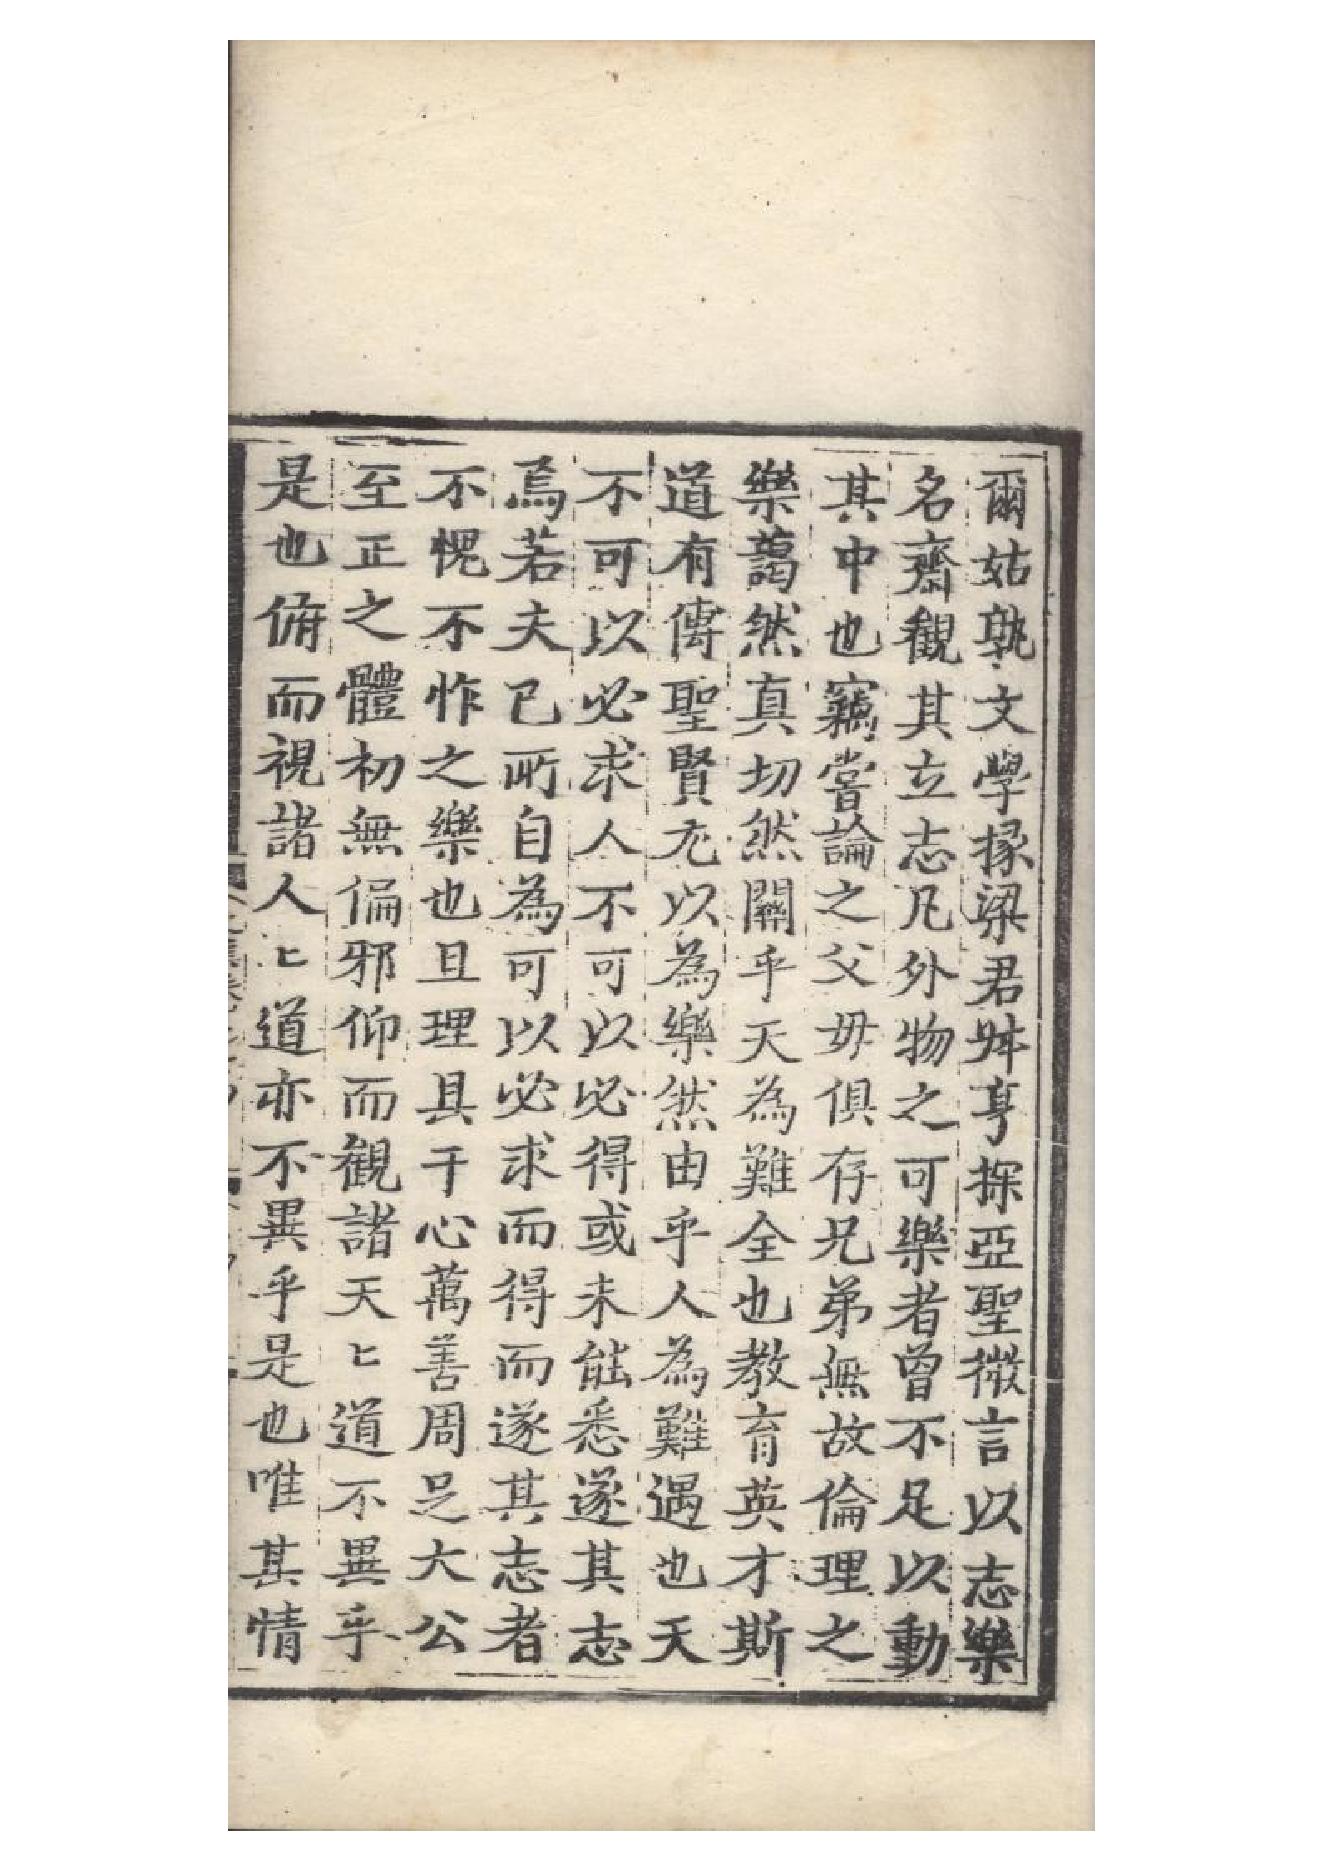 爾姑孰文學掾梁君舛亨探亞聖微言以志樂
名齋觀其立志凡外物之可樂者曾不足以動
其中也竊嘗論之父毋俱存兄弟無故倫理之
樂藹然真切然關乎天為難全也教育英才斯
道有傳聖賢尤以為樂然由乎人為難遇也天
不可以必求人不可以必得或未能悉遂其志
焉若夫已所自為可以必求而得而遂其志者
不愧不怍之樂也且理具于心萬善周足大公
至正之體初無偏邪仰而觀諸天〻道不異乎
是也俯而視諸人〻道亦不異乎是也唯其情